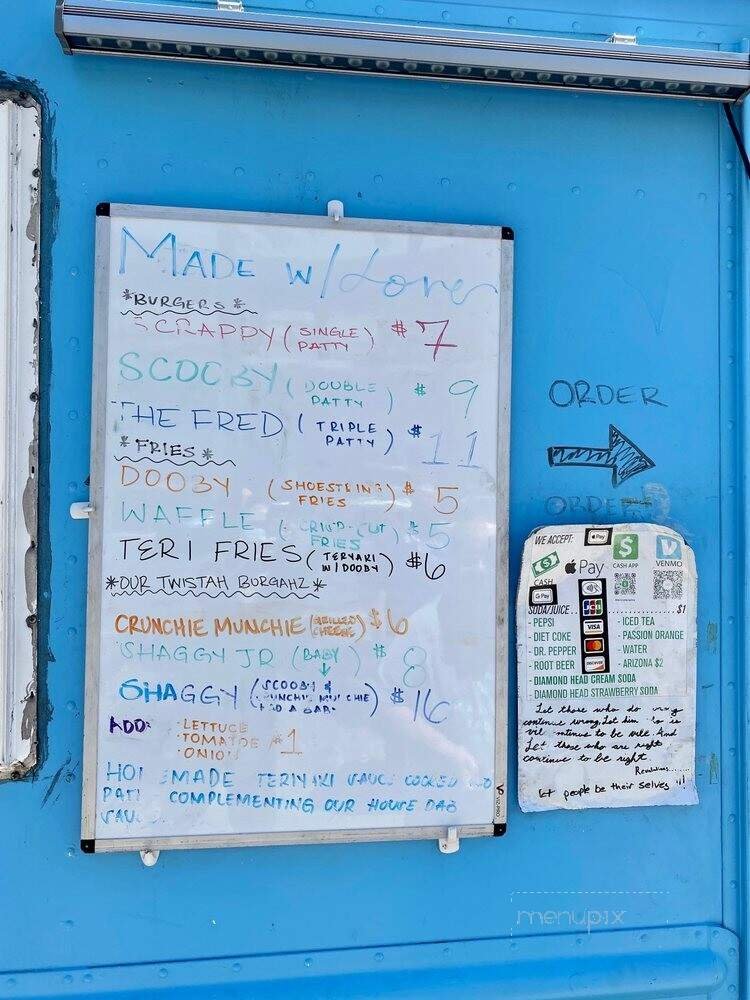 MADE W/ Love
*BURGERS*
SCRAPPY (SINGLE PATTY) $7
SCOOBY (DOUBLE PATTY) $9
THE FRED (TRIPLE PATTY) $11
*FRIES*
DOOBY (SHOESTRING FRIES) $5
WAFFLE (CRINP-CUT FRIES) $5
TERI FRIES (TERYAKI W/DOOBY) $6
*OUR TWISTAH BURGAHZ*
CRUNCHIE MUNCHIE (GRILLED CHEESE) $6
SHAGGY JR (BABY) $8
SHAGGY (SCOOBY & MUNCHIE $16
ADD:
· LETTUCE
· TOMATOE $1
· ONION
HOMEMADE TERIYAKI SAUCE COOKED
PATTY COMPLEMENTING OUR HOUSE DAB
SAUCE
ORDER
ORDER
WE ACCEPT: Pay
CASH
Pay
CASH APP
VENMO
G Pay
JCB
VISA
DISCOVER
SODA/JUICE.......$1
- PEPSI
- DIET COKE
- DR. PEPPER
- ROOT BEER
- ICED TEA
- PASSION ORANGE
- WATER
- ARIZONA $2
- DIAMOND HEAD CREAM SODA
- DIAMOND HEAD STRAWBERRY SODA
Let those who do wrong
continue wrong, Let him who is
vile continue to be vile. And
Let those who are right
continue to be right
Revelations.......
let people be their selves !!!
menupix